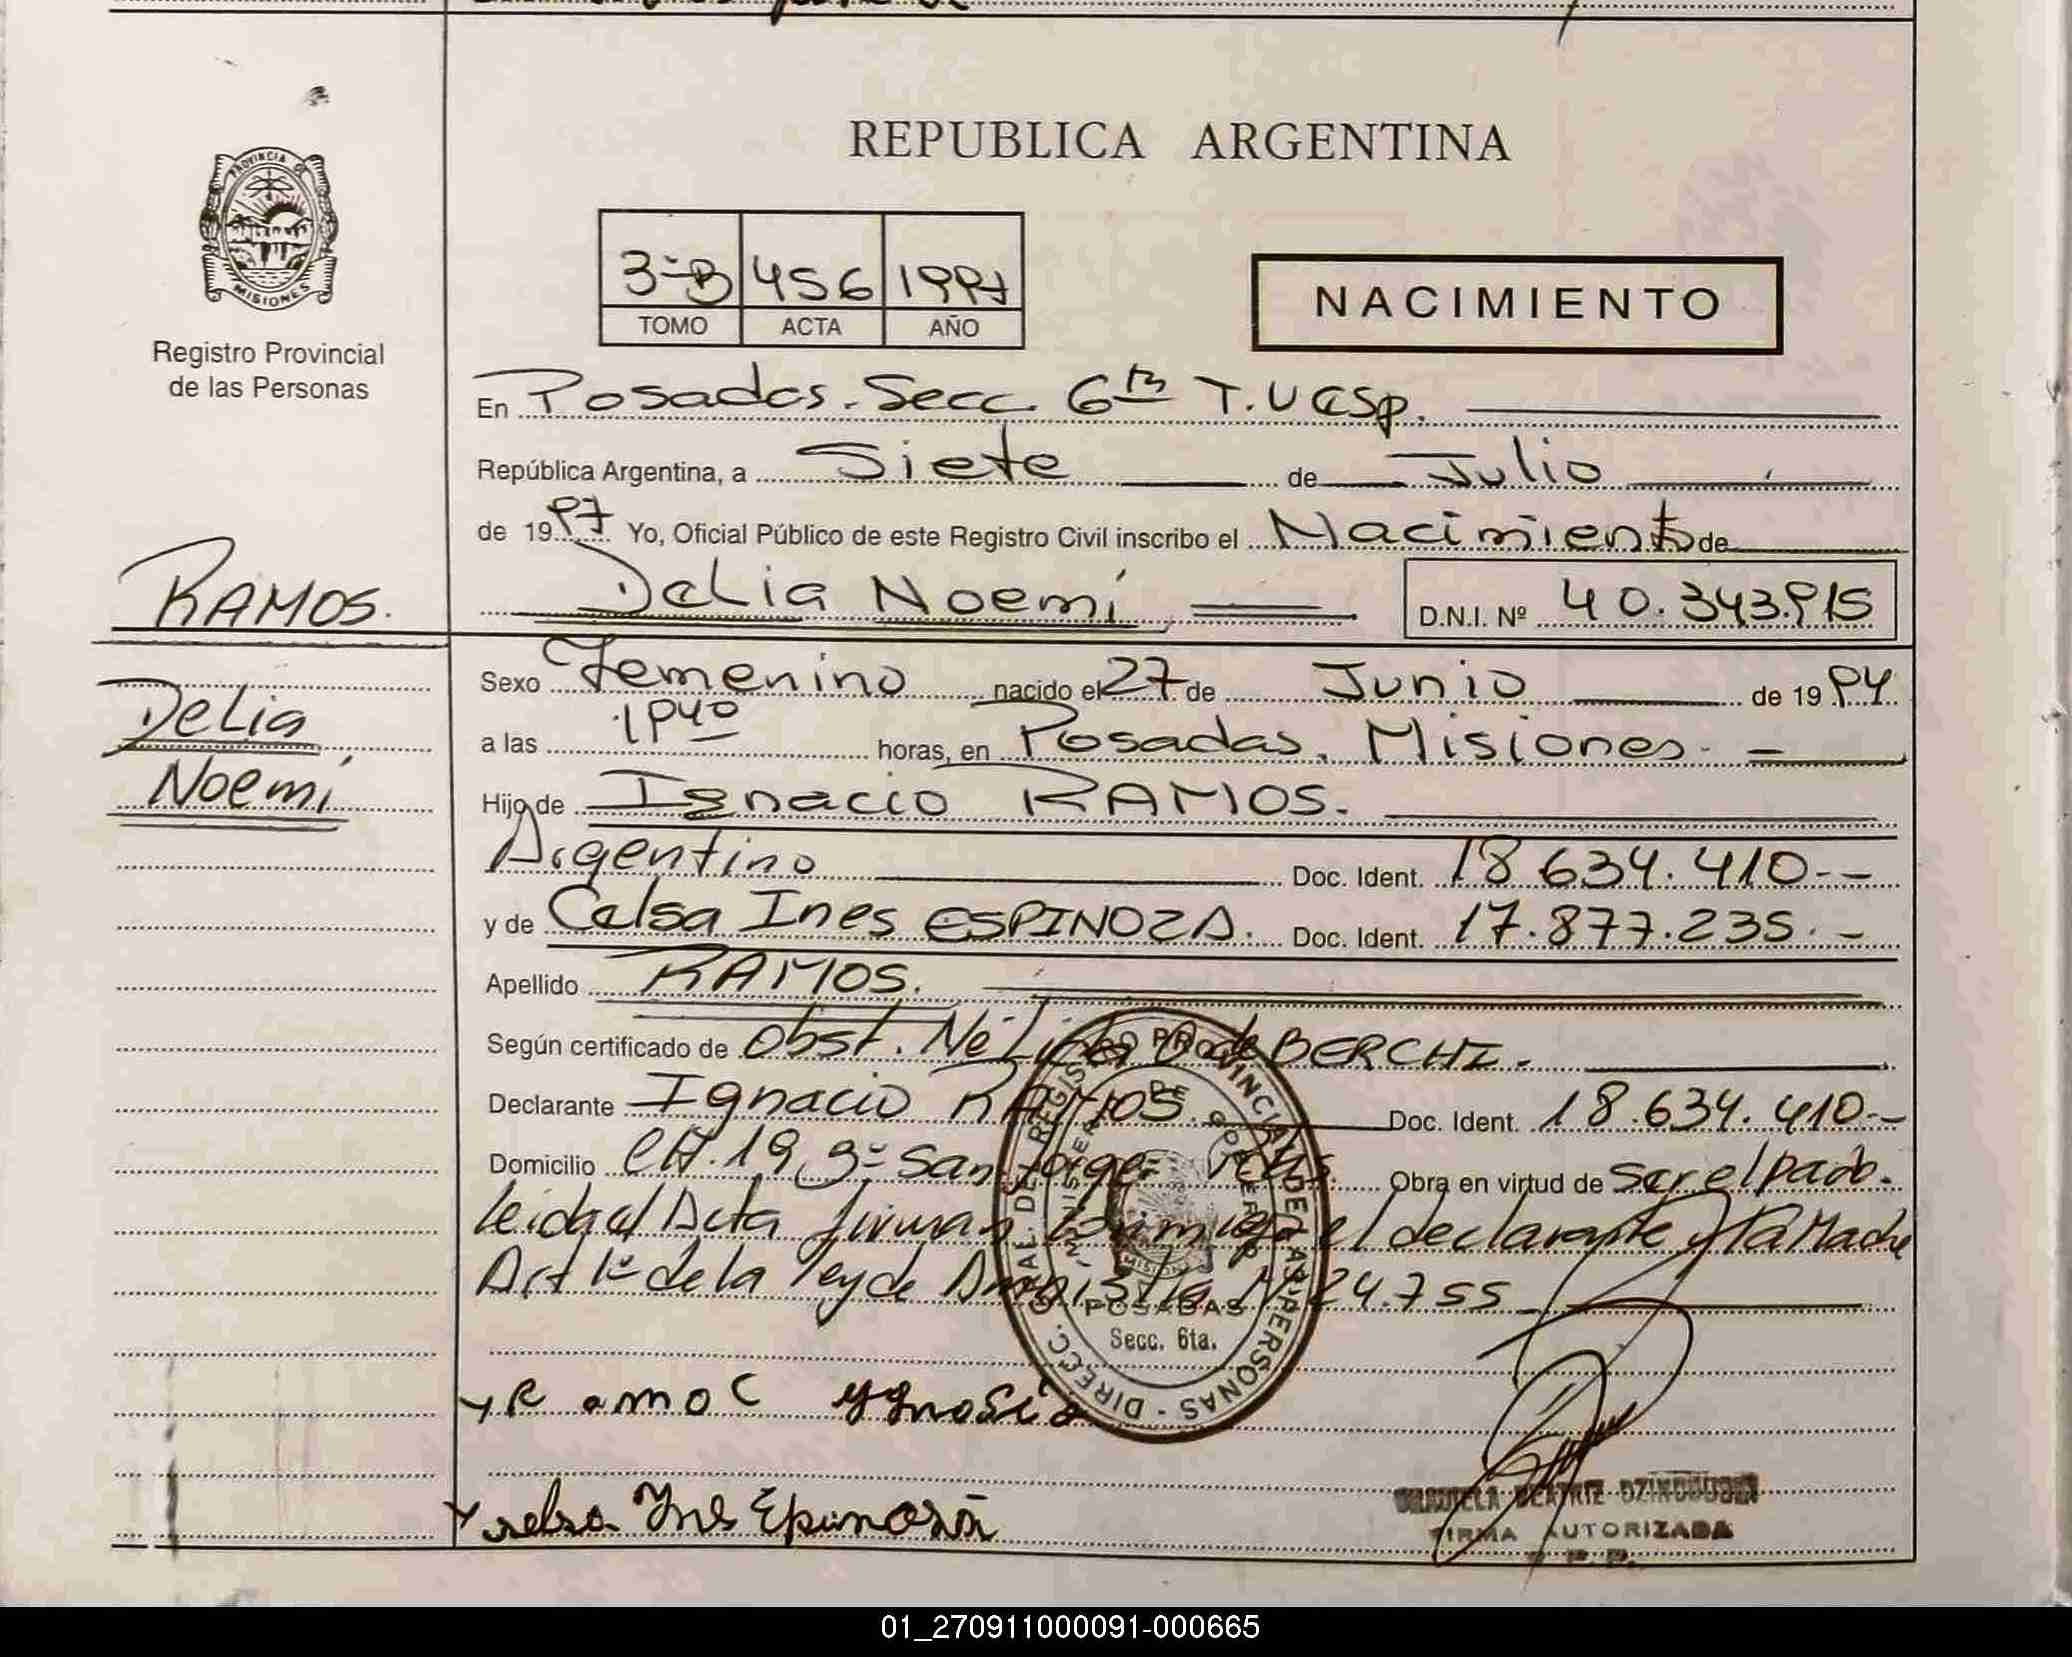 PROVINCIA DE
MISIONES
Registro Provincial
de las Personas
RAMOS.
Delia
Noemí
REPUBLICA ARGENTINA
3-B 456 1997
TOMO ACTA AÑO
NACIMIENTO
En Posadas. Secc. 6ta T.V
República Argentina, a Siete de Julio
de 1997 Yo, Oficial Público de este Registro Civil inscribo el Nacimiento de
Delia Noemí D.N.I. Nº 40.343.915
Sexo Femenino nacido el 27 de Junio de 1994
a las 1940 horas, en Posadas. Misiones.
Hijo de Ignacio RAMOS.
Argentino Doc. Ident. 18.634.410--
y de Celsa Ines ESPINOZA. Doc. Ident. 17.877.235.-
Apellido RAMOS.
Según certificado de Obst. Nélida de BERCHI.
Declarante Ignacio RAMOS. Doc. Ident. 18.634.410--
Domicilio CH. 19 San Jorge Obra en virtud de ser el padre.
leida el Acta firman conmigo el declarante y la Madre
Art 1º de la ley de Amnistia Nº 24.755
DIRECC. GRAL. DE REGISTRO PROVINCIAL DE LAS PERSONAS
MINISTERIO DE GOBIERNO
MISIONES
POSADAS
Secc. 6ta.
Ramoc Ygnasio
selsa Ynes Epinosa
BEATRIZ
FIRMA AUTORIZADA
01_270911000091-000665